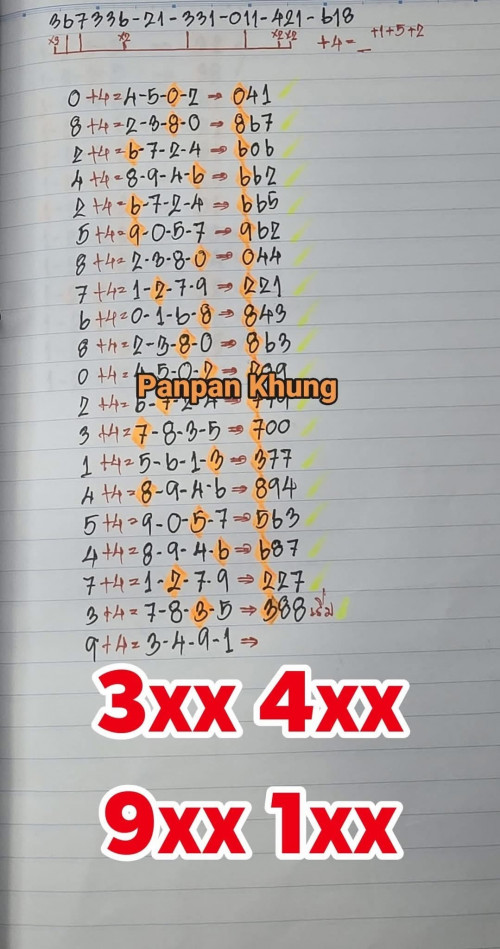 367336-21-331-011-421-618
x3 x2 x2 x2 +4=_ +1+5+2
0+4=4-5-0-2⇒041
8+4=2-3-8-0⇒867
2+4=6-7-2-4⇒606
4+4=8-9-4-6⇒662
2+4=6-7-2-4⇒665
5+4=9-0-5-7⇒962
8+4=2-3-8-0⇒044
7+4=1-2-7-9⇒221
6+4=0-1-6-8⇒843
8+4=2-3-8-0⇒863
0+4=4-5-0-2
Panpan Khung
2+4=6-7-2-4
3+4=7-8-3-5⇒700
1+4=5-6-1-3⇒377
4+4=8-9-4-6⇒894
5+4=9-0-5-7⇒563
4+4=8-9-4-6⇒687
7+4=1-2-7-9⇒227
3+4=7-8-3-5⇒388 เริ่ม
9+4=3-4-9-1⇒
3xx 4xx
9xx 1xx